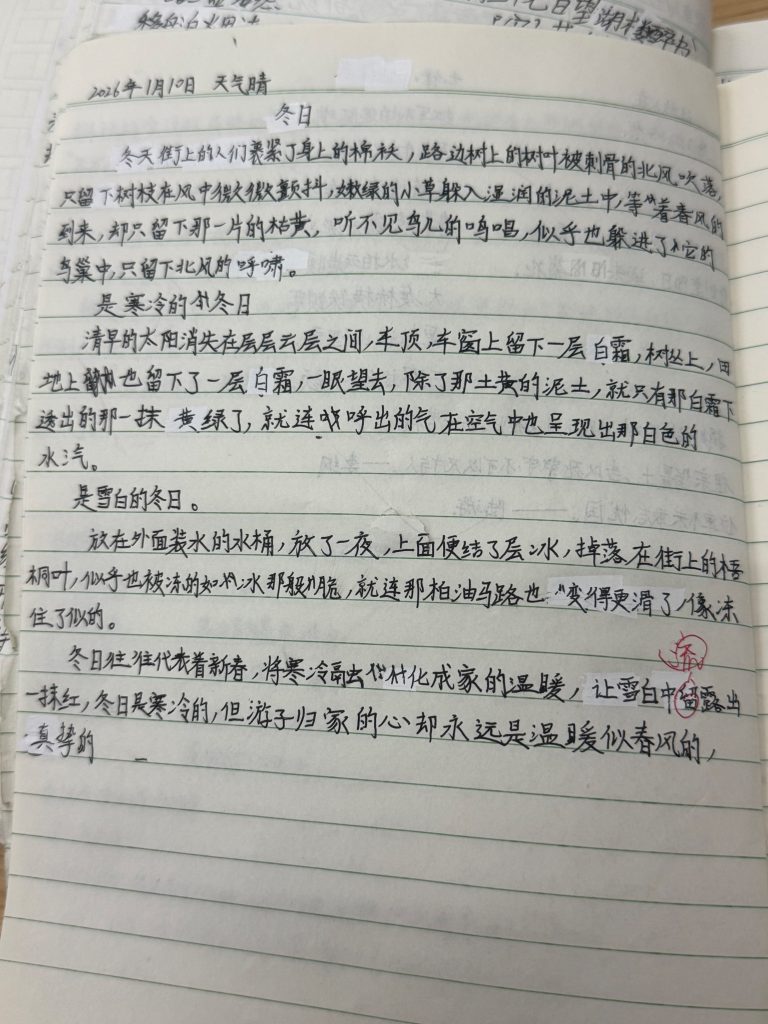 2026年1月10日 天气晴
冬日
冬天街上的人们裹紧了身上的棉袄，路边树上的树叶被刺骨的北风吹落，
只留下树枝在风中微微颤抖，嫩绿的小草躲入湿润的泥土中，等着春风的
到来，却只留下那一片的枯黄，听不见鸟儿的鸣唱，似乎也躲进了它的
鸟巢中，只留下北风的呼啸。
是寒冷的冬日
清早的太阳消失在层层云层之间，车顶，车窗上留下一层白霜，树丛上，田
地上也留下了一层白霜，一眼望去，除了那土黄的泥土，就只有那白霜下
透出的那一抹黄绿了，就连呼出的气在空气中也呈现出那白色的
水汽。
是雪白的冬日。
放在外面装水的水桶，放了一夜，上面便结了层冰，掉落在街上的梧
桐叶，似乎也被冻的如冰那般脆，就连那柏油马路也变得更滑了像冻
住了似的。
冬日往往代表着新春，将寒冷融去化成家的温暖，让雪白中留露出
一抹红，冬日是寒冷的，但游子归家的心却永远是温暖似春风的，
真挚的